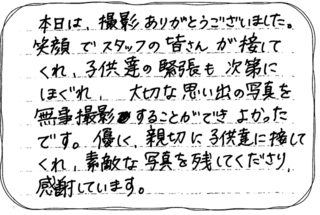 本日は、撮影ありがとうございました。
笑顔でスタッフの皆さんが接して
くれ、子供達の緊張も次第に
ほぐれ、大切な思い出の写真を
無事撮影することができよかった
です。優しく、親切に子供達に接して
くれ、素敵な写真を残してくださり、
感謝しています。